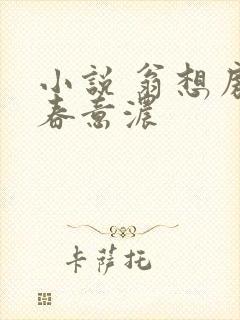 小説 翁想房
春意濃
卡薩托